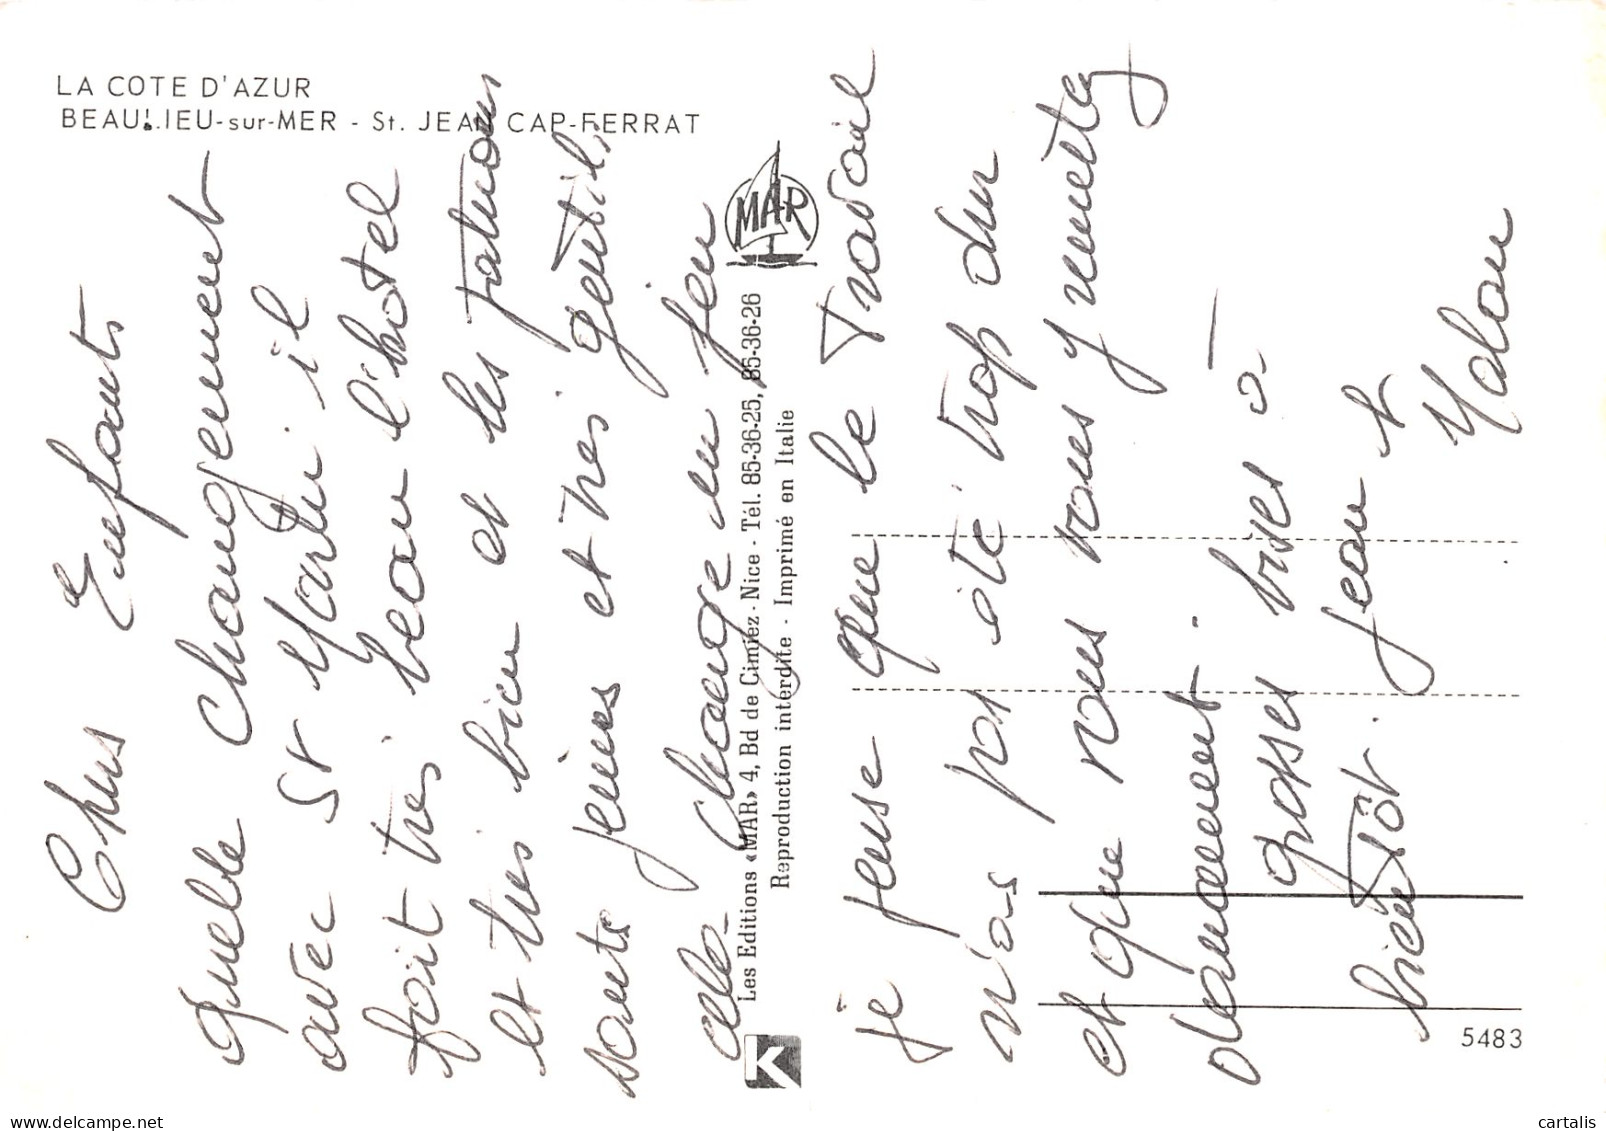 LA COTE D'AZUR
BEAULIEU-sur-MER - St. JEAN CAP-FERRAT
MAR
Les Editions «MAR» 4, Bd de Cimiez - Nice - Tél. 85-36-25, 85-36-26
Reproduction interdite - Imprimé en Italie
K
5483
Chers Enfants
quelle changement
avec St Martin. il
fait très beau l'hotel
et très bien et les patrons
sont jeunes et très gentils
cela change un peu
je pense que le Travail
n'as pas été trop dur
et que vous vous y remettez
doucement.
grosses bises à
bientôt. Jean &
Malou